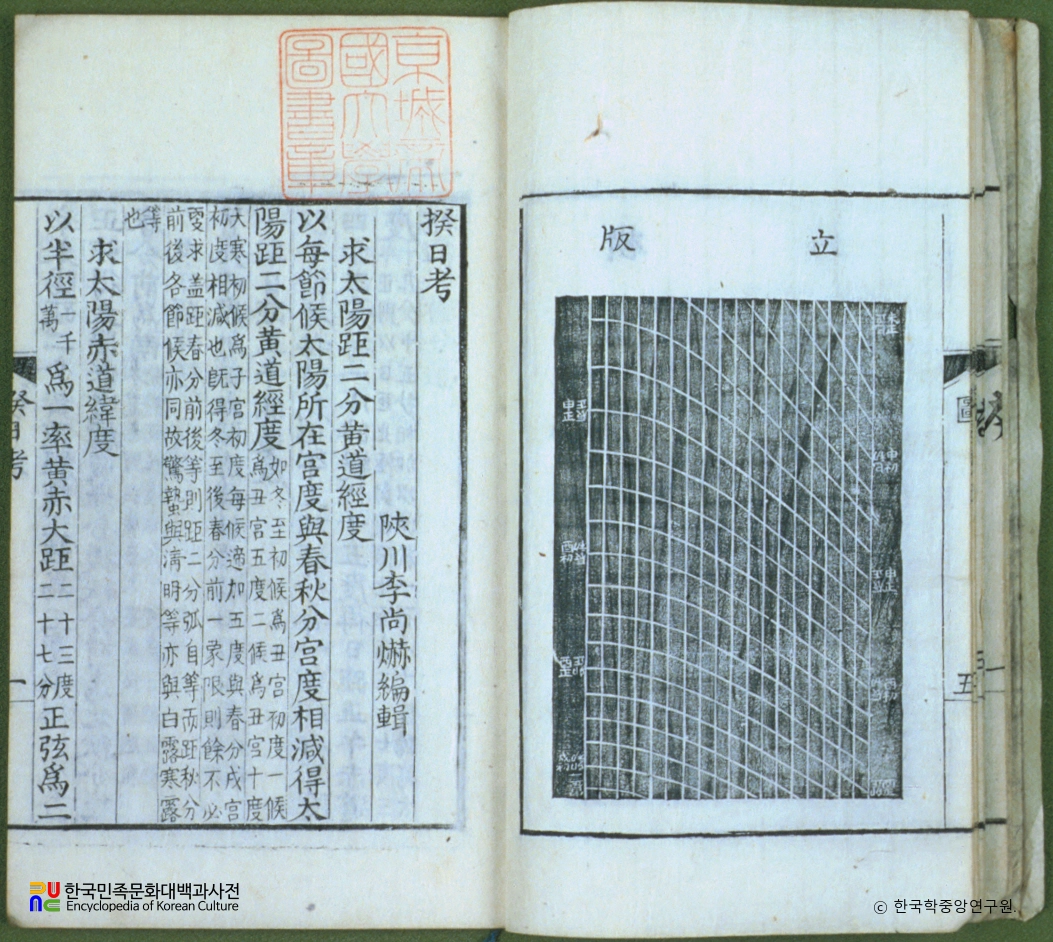 立版
圖
五
揆日考
陜川李尚爀編輯
求太陽距二分黃道經度
以每節候太陽所在宮度與春秋分宮度相減得太
陽距二分黃道經度
如冬至初候爲丑宮初度一候
爲丑宮五度二候爲丑宮十度
大寒初候爲子宮初度每候適加五度與春分戌宮
初度相減也旣得冬至後春分前一象限則餘不必
更求盖距春分前後等則距二分弧自等而距秋分
前後各節候亦同故驚蟄與淸明等亦與白露寒露
等
也
求太陽赤道緯度
以半徑一千萬爲一率黃赤大距二十三度二十七分正弦爲二
揆日考
一
京城帝
國大學
圖書章
한국민족문화대백과사전
Encyclopedia of Korean Culture
© 한국학중앙연구원.